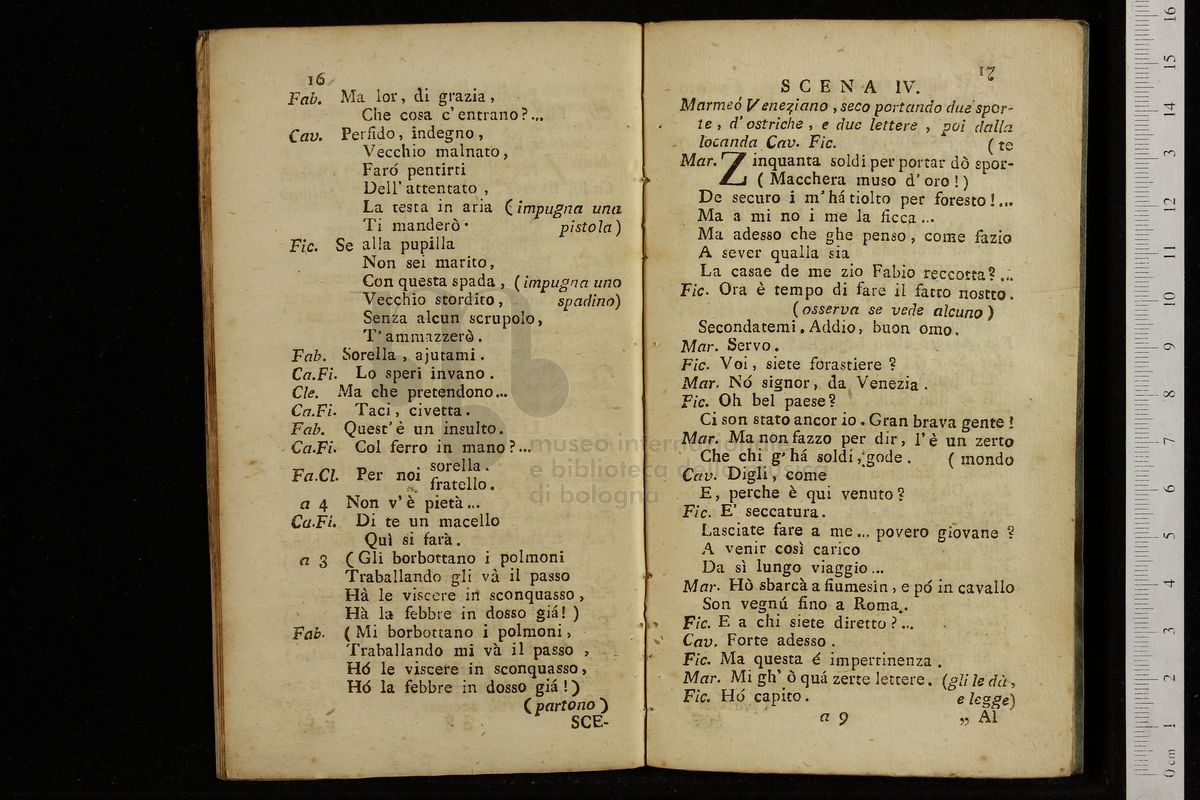 16
Fab. Ma lor, di grazia,
Che cosa c'entrano?...
Cav. Perfido, indegno,
Vecchio malnato,
Faró pentirti
Dell' attentato,
La testa in aria (impugna una
Ti manderò. pistola)
Fic. Se alla pupilla
Non sei marito,
Con questa spada, (impugna uno
Vecchio stordito, spadino)
Senza alcun scrupolo,
T' ammazzerò.
Fab. Sorella, ajutami.
Ca.Fi. Lo speri invano.
Cle. Ma che pretendono...
Ca.Fi. Taci, civetta.
Fab. Quest'è un insulto.
Ca.Fi. Col ferro in mano?...
Fa.Cl. Per noi sorella.
fratello.
a 4 Non v'è pietà...
Ca.Fi. Di te un macello
Quì si farà.
a 3 (Gli borbottano i polmoni
Traballando gli và il passo
Hà le viscere in sconquasso,
Hà la febbre in dosso giá!)
Fab. (Mi borbottano i polmoni,
Traballando mi và il passo,
Hó le viscere in sconquasso,
Hó la febbre in dosso giá!)
(partono)
SCE-
17
SCENA IV.
Marmeó Veneziano, seco portando due spor-
te, d'ostriche, e due lettere, poi dalla
locanda Cav. Fic. (te
Mar. Zinquanta soldi per portar dò spor-
(Macchera muso d'oro!)
De securo i m'há tiolto per foresto!...
Ma a mi no i me la ficca...
Ma adesso che ghe penso, come fazio
A sever qualla sia
La casae de me zio Fabio reccotta?...
Fic. Ora è tempo di fare il fatto nostto.
(osserva se vede alcuno)
Secondatemi. Addio, buon omo.
Mar. Servo.
Fic. Voi, siete forastiere?
Mar. Nó signor, da Venezia.
Fic. Oh bel paese?
Ci son stato ancor io. Gran brava gente!
Mar. Ma non fazzo per dir, l'è un zerto
Che chi g'há soldi, gode. (mondo
Cav. Digli, come
E, perche è qui venuto?
Fic. E' seccatura.
Lasciate fare a me... povero giovane?
A venir così carico
Da sì lungo viaggio...
Mar. Hò sbarcà a fiumesin, e pó in cavallo
Son vegnú fino a Roma..
Fic. E a chi siete diretto?...
Cav. Forte adesso.
Fic. Ma questa é impertinenza.
Mar. Mi gh' ò quá zerte lettere. (gli le dà,
Fic. Hó capito. e legge)
a 9 „ Al
museo internazionale
e biblioteca della musica
di bologna
0 cm 1 2 3 4 5 6 7 8 9 10 11 12 13 14 15 16